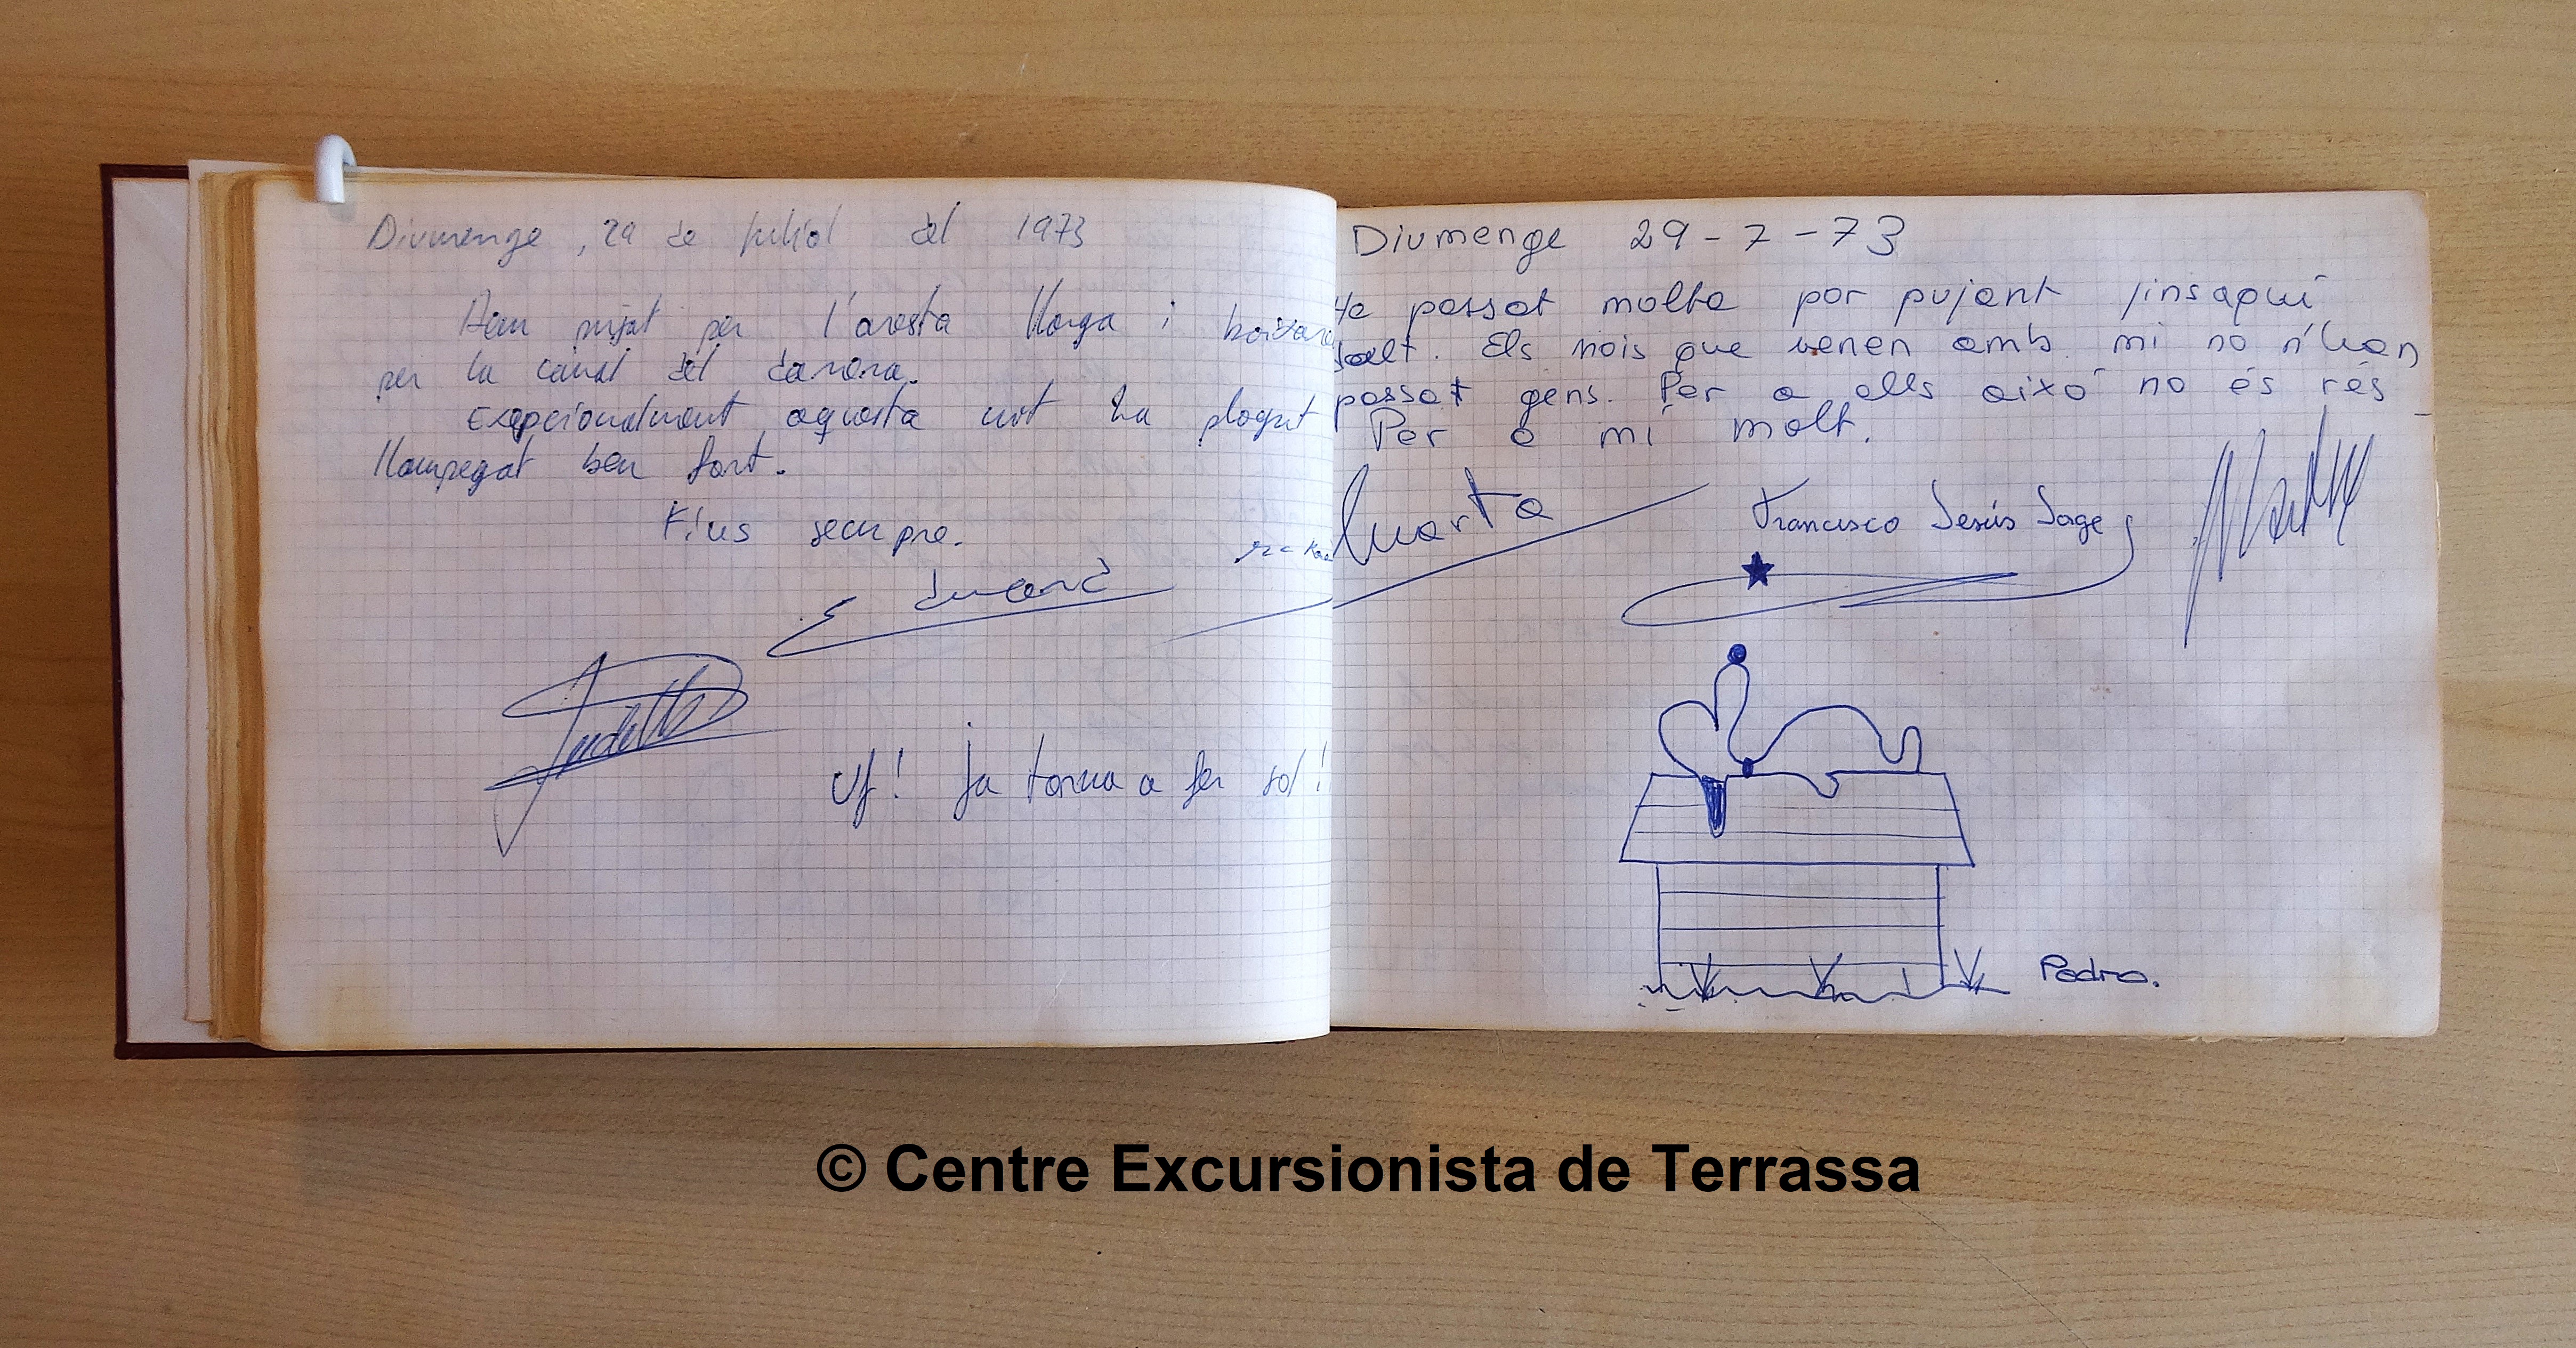 Diumenge, 29 de Juliol del 1973
Hem pujat per l'aresta llarga i
per la canal del darrera.
Exepcionalment aquesta nit ha plogut
llampegat ben fort.
Fins sempre.
Uf! ja torna a fer sol!
Diumenge 29-7-73
He passat molta por pujant finsaquí
dalt. Els nois que venen amb mi no n'han
passat gens. Per a ells aixó no és rés
Per a mi molt.
Marta
Francisco Jesús Jorge
Pedro.
© Centre Excursionista de Terrassa